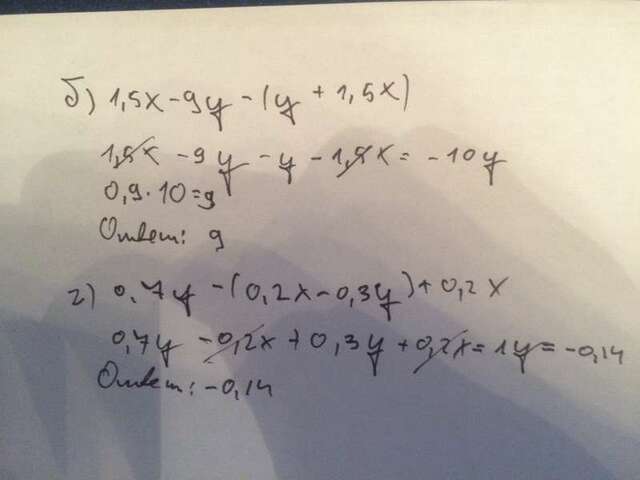 б) 1,5x - 9y - (y + 1,5x)
1,5x - 9y - y - 1,5x = -10y
0,9·10=9
Ответ: 9
г) 0,7y - (0,2x - 0,3y) + 0,2x
0,7y - 0,2x + 0,3y + 0,2x = 1y = -0,14
Ответ: -0,14